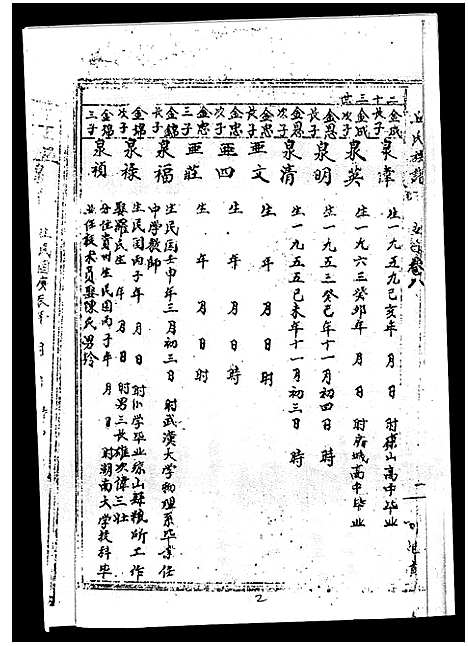 丘氏族譜
卷八
二十三世
金成長子
泉偉
生一九五九己亥年 月 日 時琼山高中毕业
金成三子
泉英
生一九六三癸卯年 月 日 時府城高中毕业
金恩長子
泉明
生一九五三癸巳年十一月初四日 時
金恩次子
泉清
生一九五五乙未年十一月初三日 時
金忠長子
亜文
生 年 月 日 時
金忠次子
亜四
生 年 月 日 時
金忠三子
亜莊
生 年 月 日 時
金錦長子
泉福
生民国壬申年三月初三日 時武漢大学物理系毕業任
中学教師
金錦次子
泉祿
生民国丙子年 月 日 時小学毕业琼山縣粮所工作
娶羅氏生 年 月 日 時男三長雄次偉三壮
金錦三子
泉禎
分住貴州生民国丙子年 月 日 時湖南大学技科毕
业任技术員娶陳氏男玲
2